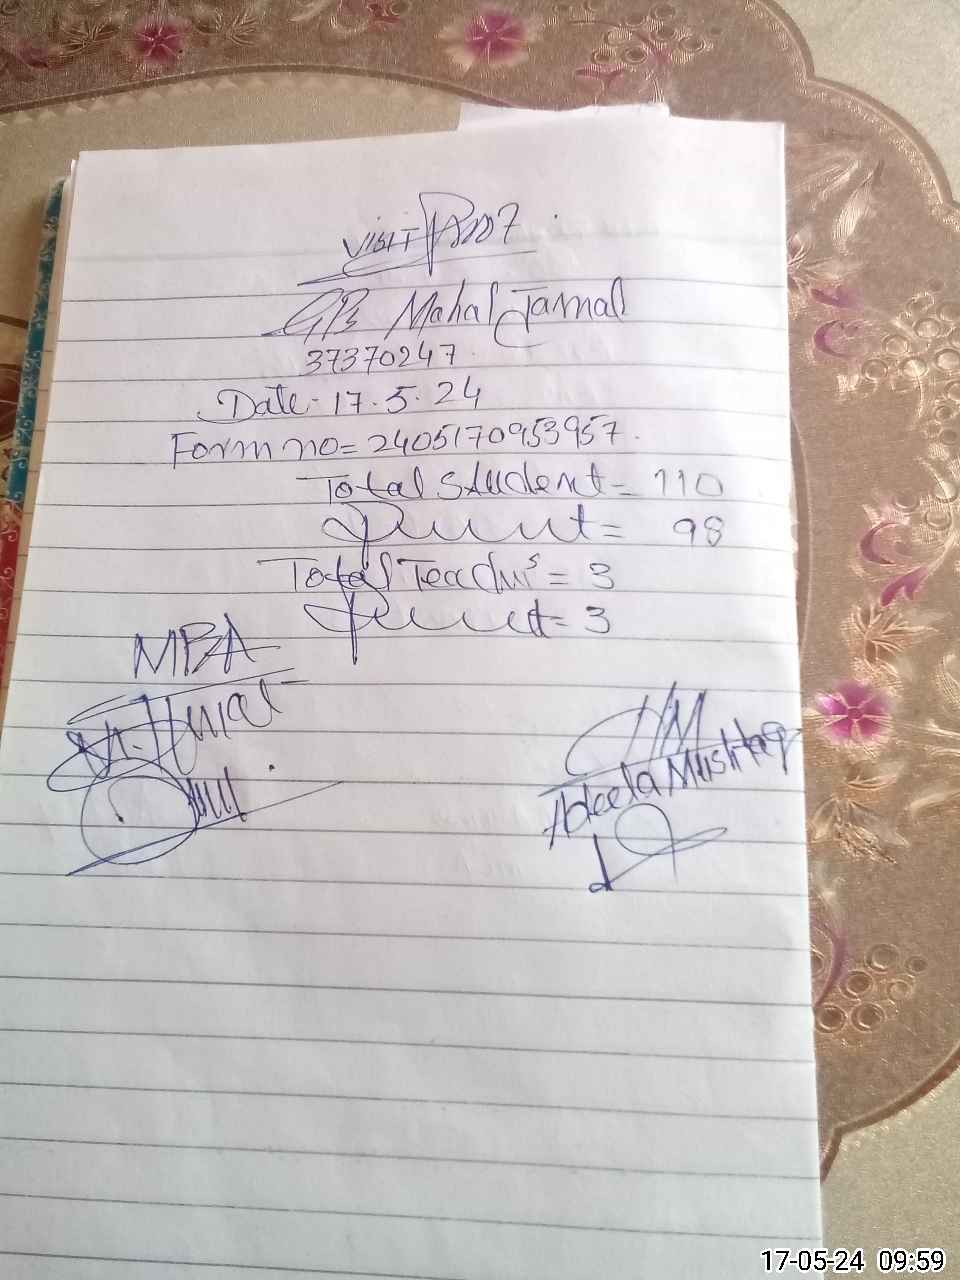 VISIT Proof
GPS Mahal Jamal
37370247
Date. 17.5.24
Form no= 2405170953957.
Total Student= 110
Present= 98
Total Teachers= 3
Present= 3
MEA
HM
Adeela Mushtaq
17-05-24 09:59